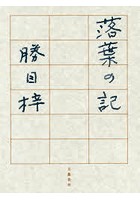 落葉の記
勝目梓
文藝春秋